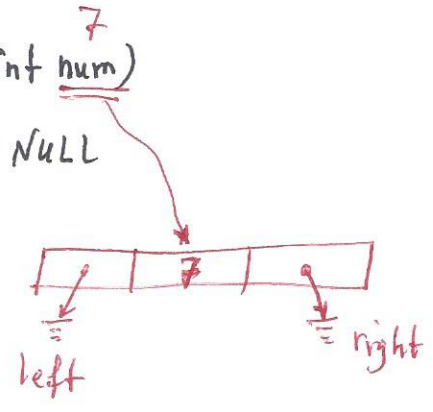 7
int num)
NULL
7
left
right